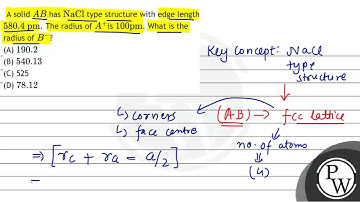 A solid AB has NaCl type structure with edge length
580.4 pm. The radius of A⁺ is 100pm. What is the
radius of B⁻?
(A) 190.2
(B) 540.13
(C) 525
(D) 78.12
Key Concept: NaCl
type
structure
(AB) → fcc lattice
↳ corners
↳ face centre
no. of atoms
(4)
⇒ [rc + ra = a/2]
=
PW